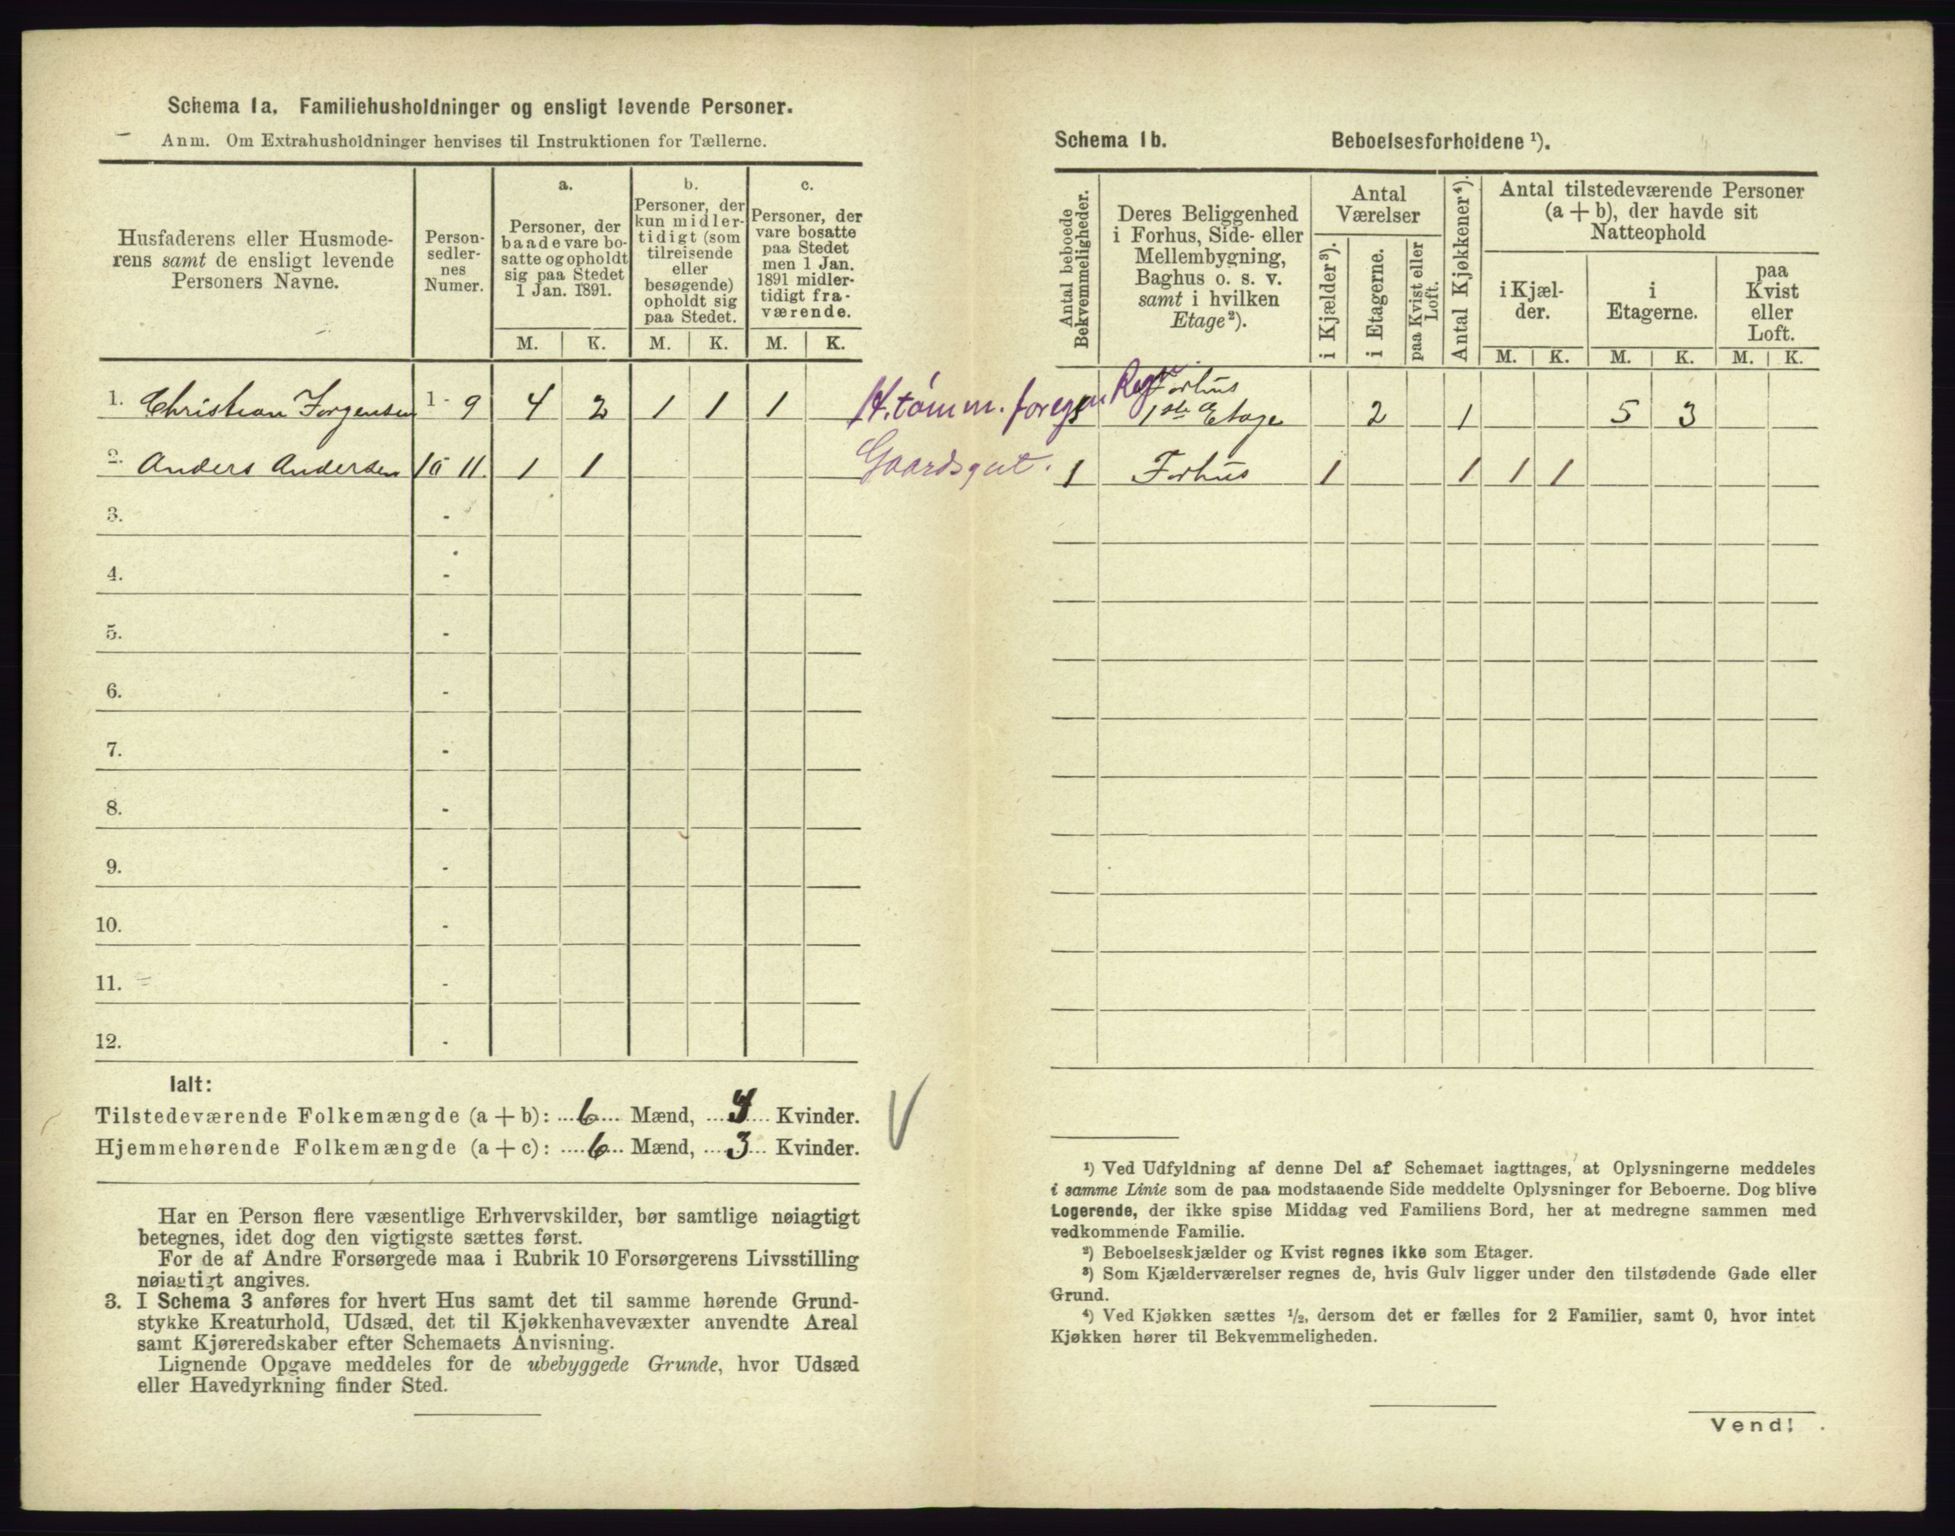 Schema 1a. Familiehusholdninger og ensligt levende Personer.
Anm. Om Extrahusholdninger henvises til Instruktionen for Tællerne.
Husfaderens eller Husmode-
rens samt de ensligt levende
Personers Navne.
Person-
sedler-
nes
Numer.
a.
Personer, der
baade vare bo-
satte og opholdt
sig paa Stedet
1 Jan. 1891.
b.
Personer, der
kun midler-
tidigt (som
tilreisende
eller
besøgende)
opholdt sig
paa Stedet.
c.
Personer, der
vare bosatte
paa Stedet
men 1 Jan.
1891 midler-
tidigt fra-
værende.
M. K. M. K. M. K.
1. Christian Jorgensen 1 - 9 4 2 1 1 1
2. Anders Andersen 10 11 1 1
3. -
4. -
5. -
6. -
7. -
8. -
9. -
10. -
11. -
12. -
Ialt:
Tilstedeværende Folkemængde (a + b): 6 Mænd, 4 Kvinder.
Hjemmehørende Folkemængde (a + c): 6 Mænd, 3 Kvinder.
Har en Person flere væsentlige Erhvervskilder, bør samtlige nøiagtigt
betegnes, idet dog den vigtigste sættes først.
For de af Andre Forsørgede maa i Rubrik 10 Forsørgerens Livsstilling
nøiagtigt angives.
3. I Schema 3 anføres for hvert Hus samt det til samme hørende Grund-
stykke Kreaturhold, Udsæd, det til Kjøkkenhavevæxter anvendte Areal
samt Kjøreredskaber efter Schemaets Anvisning.
Lignende Opgave meddeles for de ubebyggede Grunde, hvor Udsæd
eller Havedyrkning finder Sted.
Schema 1b. Beboelsesforholdene ¹).
Antal beboede
Bekvemmeligheder.
Deres Beliggenhed
i Forhus, Side- eller
Mellembygning,
Baghus o. s. v.
samt i hvilken
Etage²).
Antal
Værelser
i Kjælder³).
i Etagerne.
paa Kvist eller
Loft.
Antal Kjøkkener⁴).
Antal tilstedeværende Personer
(a + b), der havde sit
Natteophold
i Kjæl-
der.
i
Etagerne.
paa
Kvist
eller
Loft.
M. K. M. K. M. K.
Forhus
1ste Etage 2 1 5 3
Gaardsgut. 1 Forhus 1 1 1 1
¹) Ved Udfyldning af denne Del af Schemaet iagttages, at Oplysningerne meddeles
i samme Linie som de paa modstaaende Side meddelte Oplysninger for Beboerne. Dog blive
Logerende, der ikke spise Middag ved Familiens Bord, her at medregne sammen med
vedkommende Familie.
²) Beboelseskjælder og Kvist regnes ikke som Etager.
³) Som Kjælderværelser regnes de, hvis Gulv ligger under den tilstødende Gade eller
Grund.
⁴) Ved Kjøkken sættes ½, dersom det er fælles for 2 Familier, samt 0, hvor intet
Kjøkken hører til Bekvemmeligheden.
Vend!